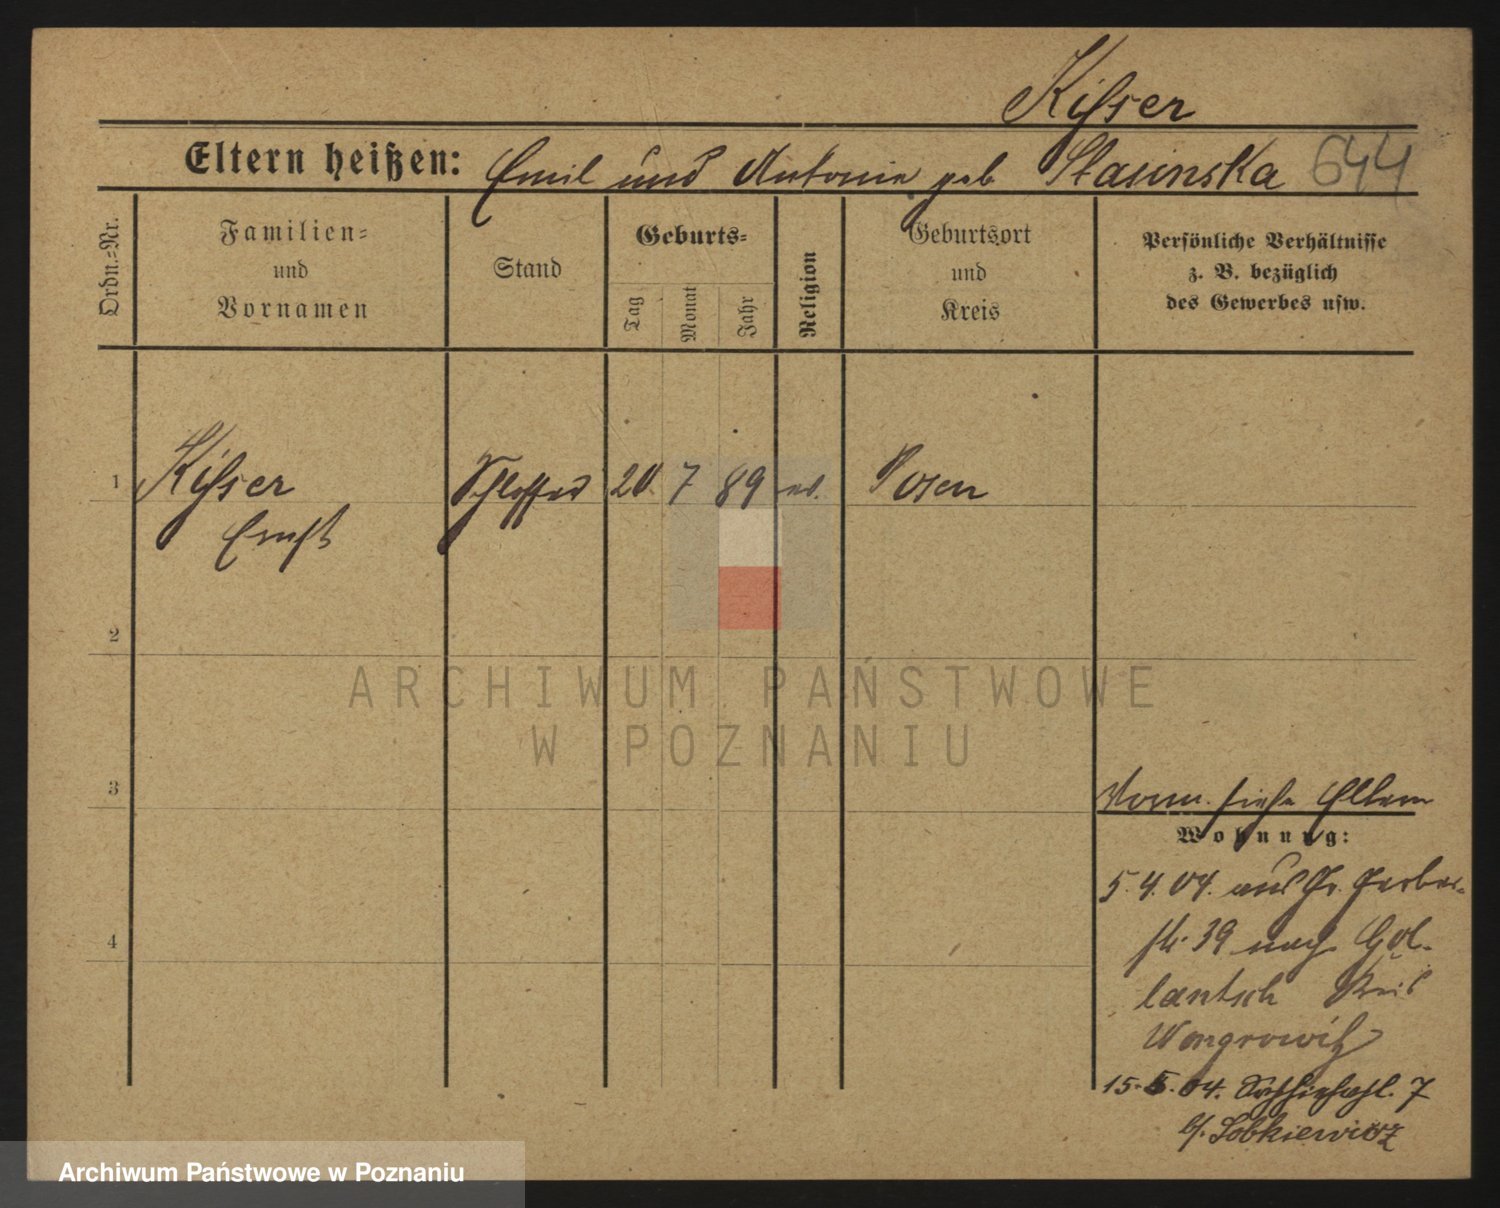 Kisser
Eltern heißen: Emil und Antonie geb Stasinska 644
Ordn.=Nr.
Familien=
und
Vornamen
Stand
Geburts=
Tag
Monat
Jahr
Religion
Geburtsort
und
Kreis
Persönliche Verhältnisse
z. B. bezüglich
des Gewerbes usw.
1 Kisser Schlosser 20 7 89 ev. Posen
Ernst
2
ARCHIWUM PAŃSTWOWE
W POZNANIU
3
Vorm. siehe Eltern
Wohnung:
5.4.04. aus Gr. Gerber-
str. 39 nach Gol-
4
lantsch Kreis
Wongrowitz
15.5.04. 7
b/. Sobkiewicz
Archiwum Państwowe w Poznaniu